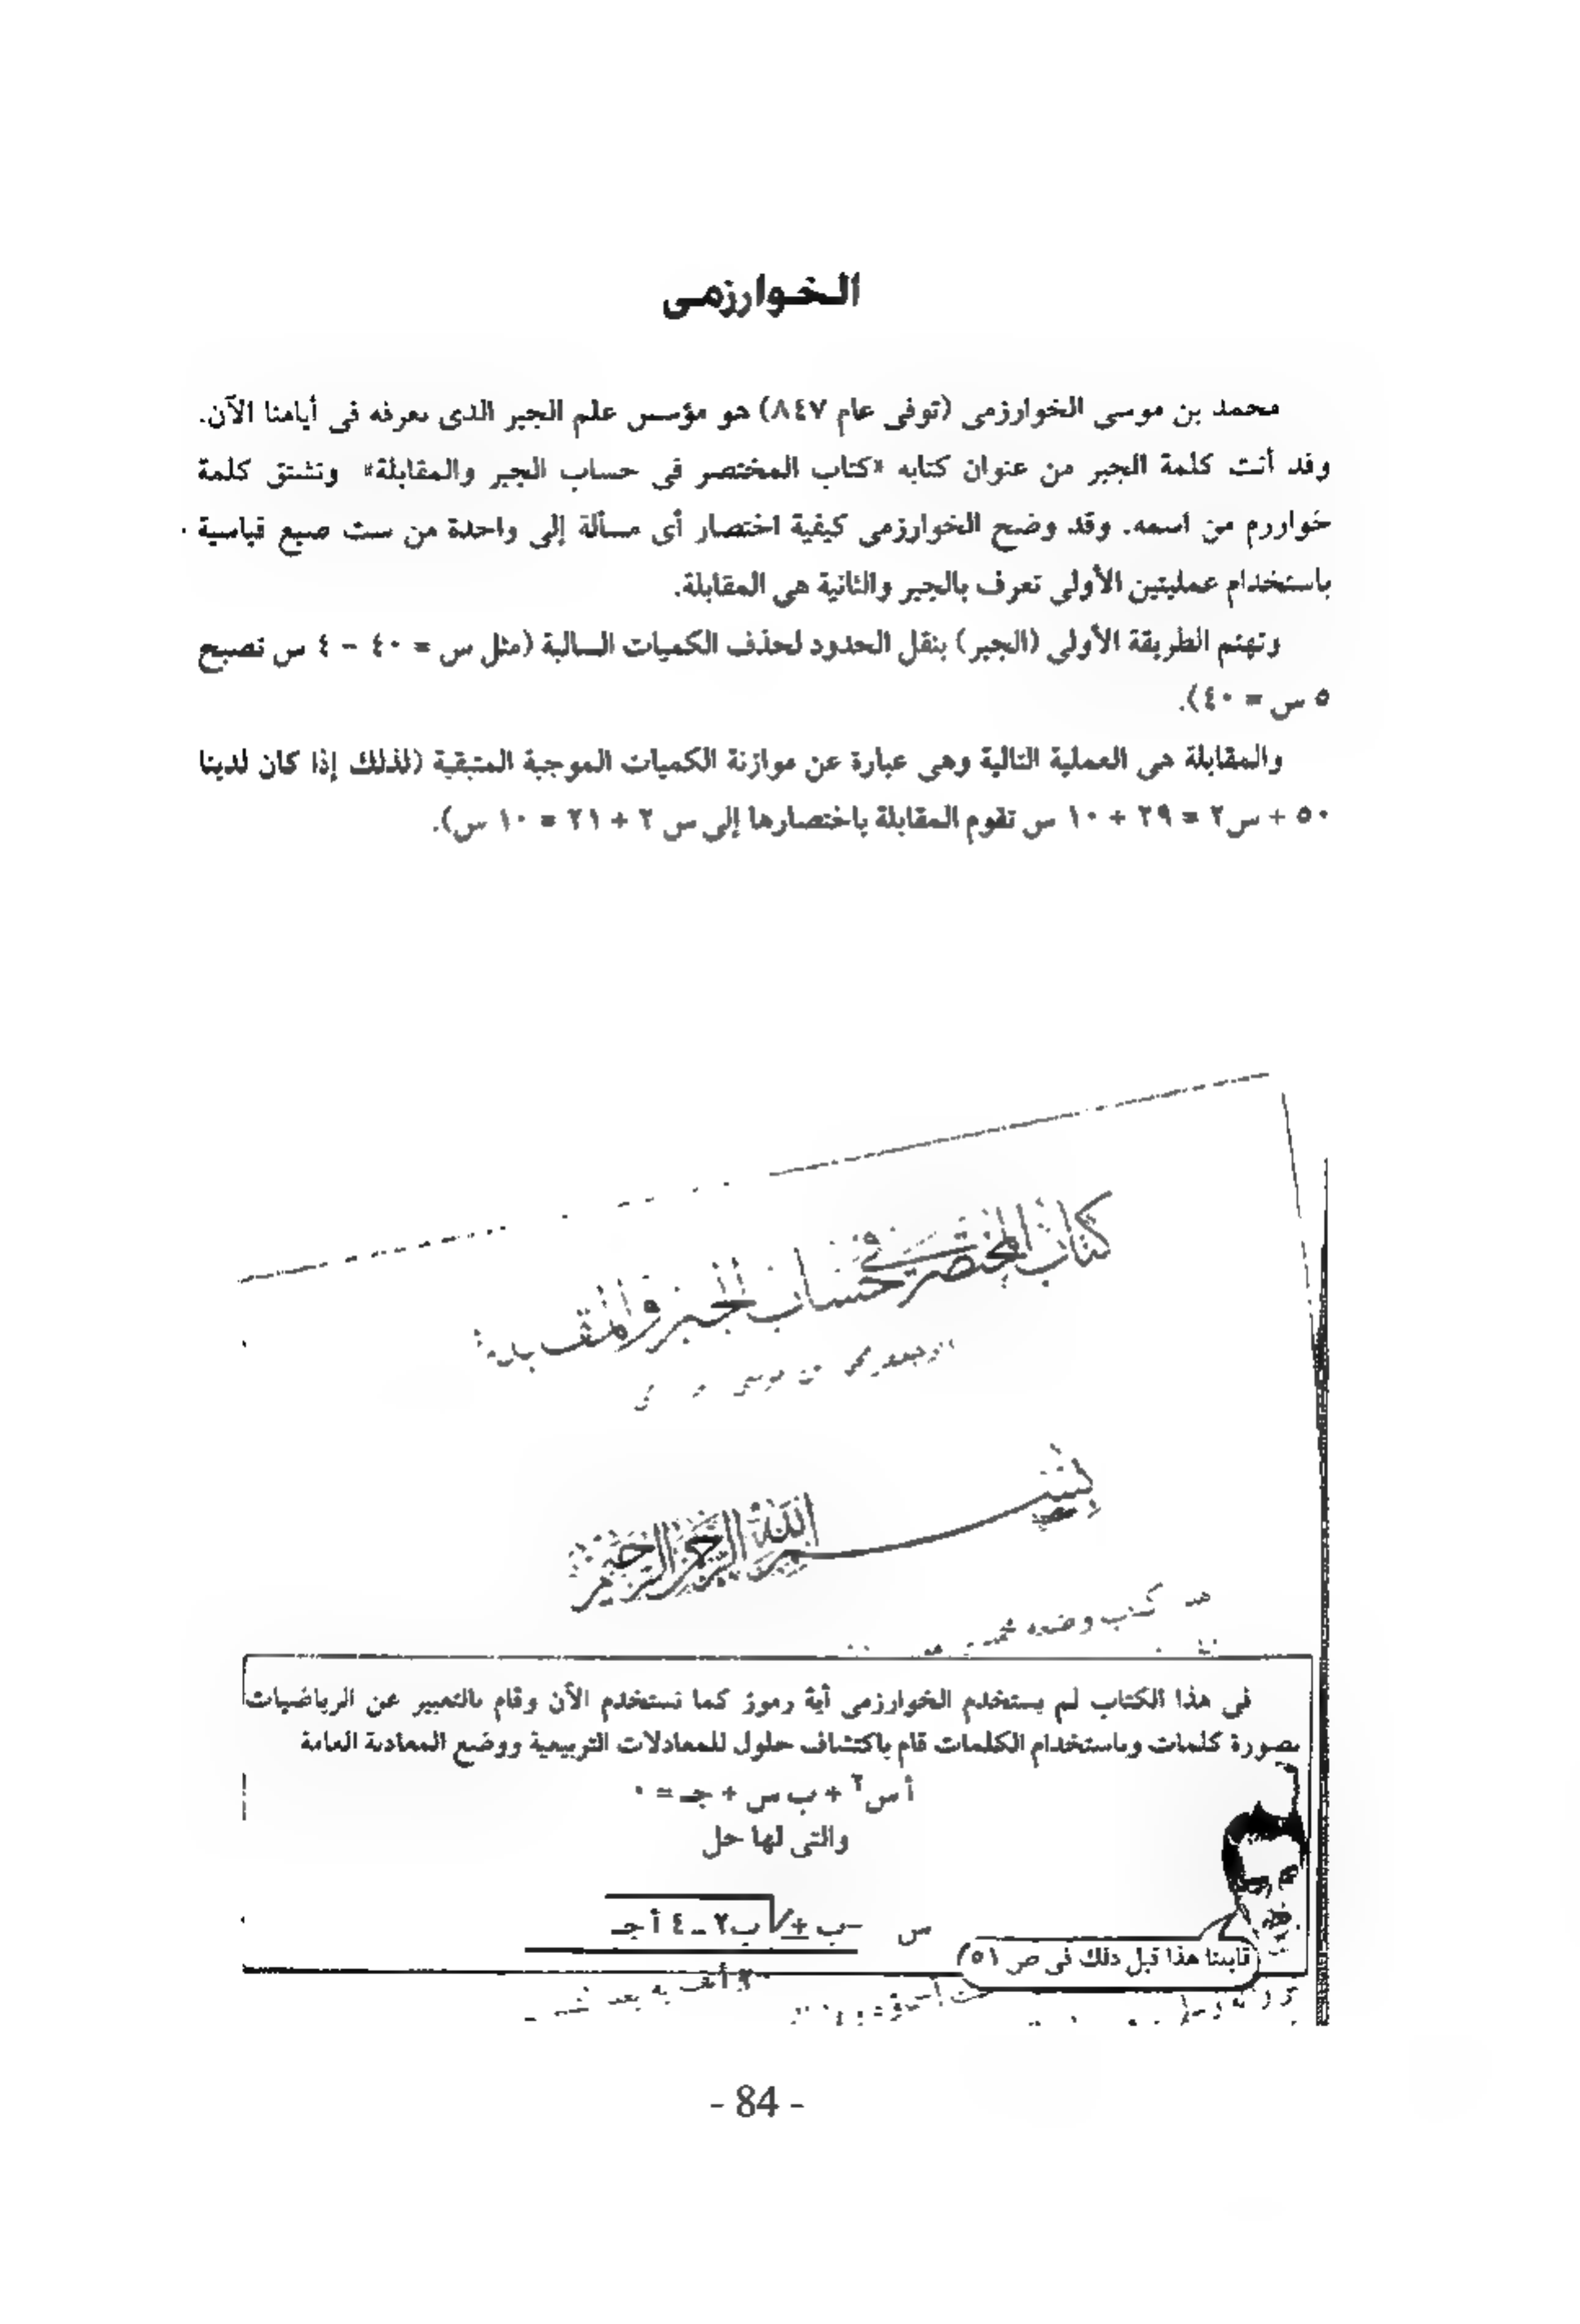 الخوارزمى
محمد بن موسى الخوارزمى (توفى عام ٨٤٧) هو مؤسس علم الجبر الذى نعرفه فى أيامنا الآن.
وقد أتت كلمة الجبر من عنوان كتابه «كتاب المختصر فى حساب الجبر والمقابلة» وتشتق كلمة
خواررم من اسمه. وقد وضح الخوارزمى كيفية اختصار أى مسألة إلى واحدة من ست صيغ قياسية
باستخدام عمليتين الأولى تعرف بالجبر والثانية هى المقابلة.
وتهتم الطريقة الأولى (الجبر) بنقل الحدود لحذف الكميات السالبة (مثل س = ٤٠ - ٤ س تصبح
٥ س = ٤٠).
والمقابلة هى العملية التالية وهى عبارة عن موازنة الكميات الموجبة المتبقية (لذلك إذا كان لدينا
٥٠ + س٢ = ٢٩ + ١٠ س تقوم المقابلة باختصارها إلى س ٢ + ٢١ = ١٠ س).
كتاب المختصر في حساب الجبر والمقابلة
بسم الله الرحمن الرحيم
كتاب وضعه محمد
فى هذا الكتاب لم يستخدم الخوارزمى أية رموز كما نستخدم الأن وقام بالتعبير عن الرياضيات
بصورة كلمات وباستخدام الكلمات قام باكتشاف حلول للمعادلات التربيعية ووضع المعادلة العامة
أ س٢ + ب س + جـ = ٠
والتى لها حل
س –ب ± √ب٢ ـ ٤ أ جـ
٢ أ
قابلنا هذا قبل ذلك فى ص (٥١)
- 84 -